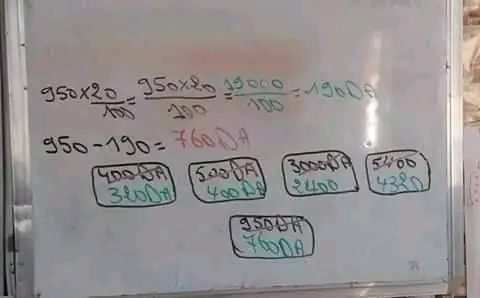 950×20/100 = 950×20/100 = 19000/100 = 190DA
950 - 190 = 760DA
400DA 500DA 3000DA 5400
320DA 400DA 2400 4320
950DA
760DA